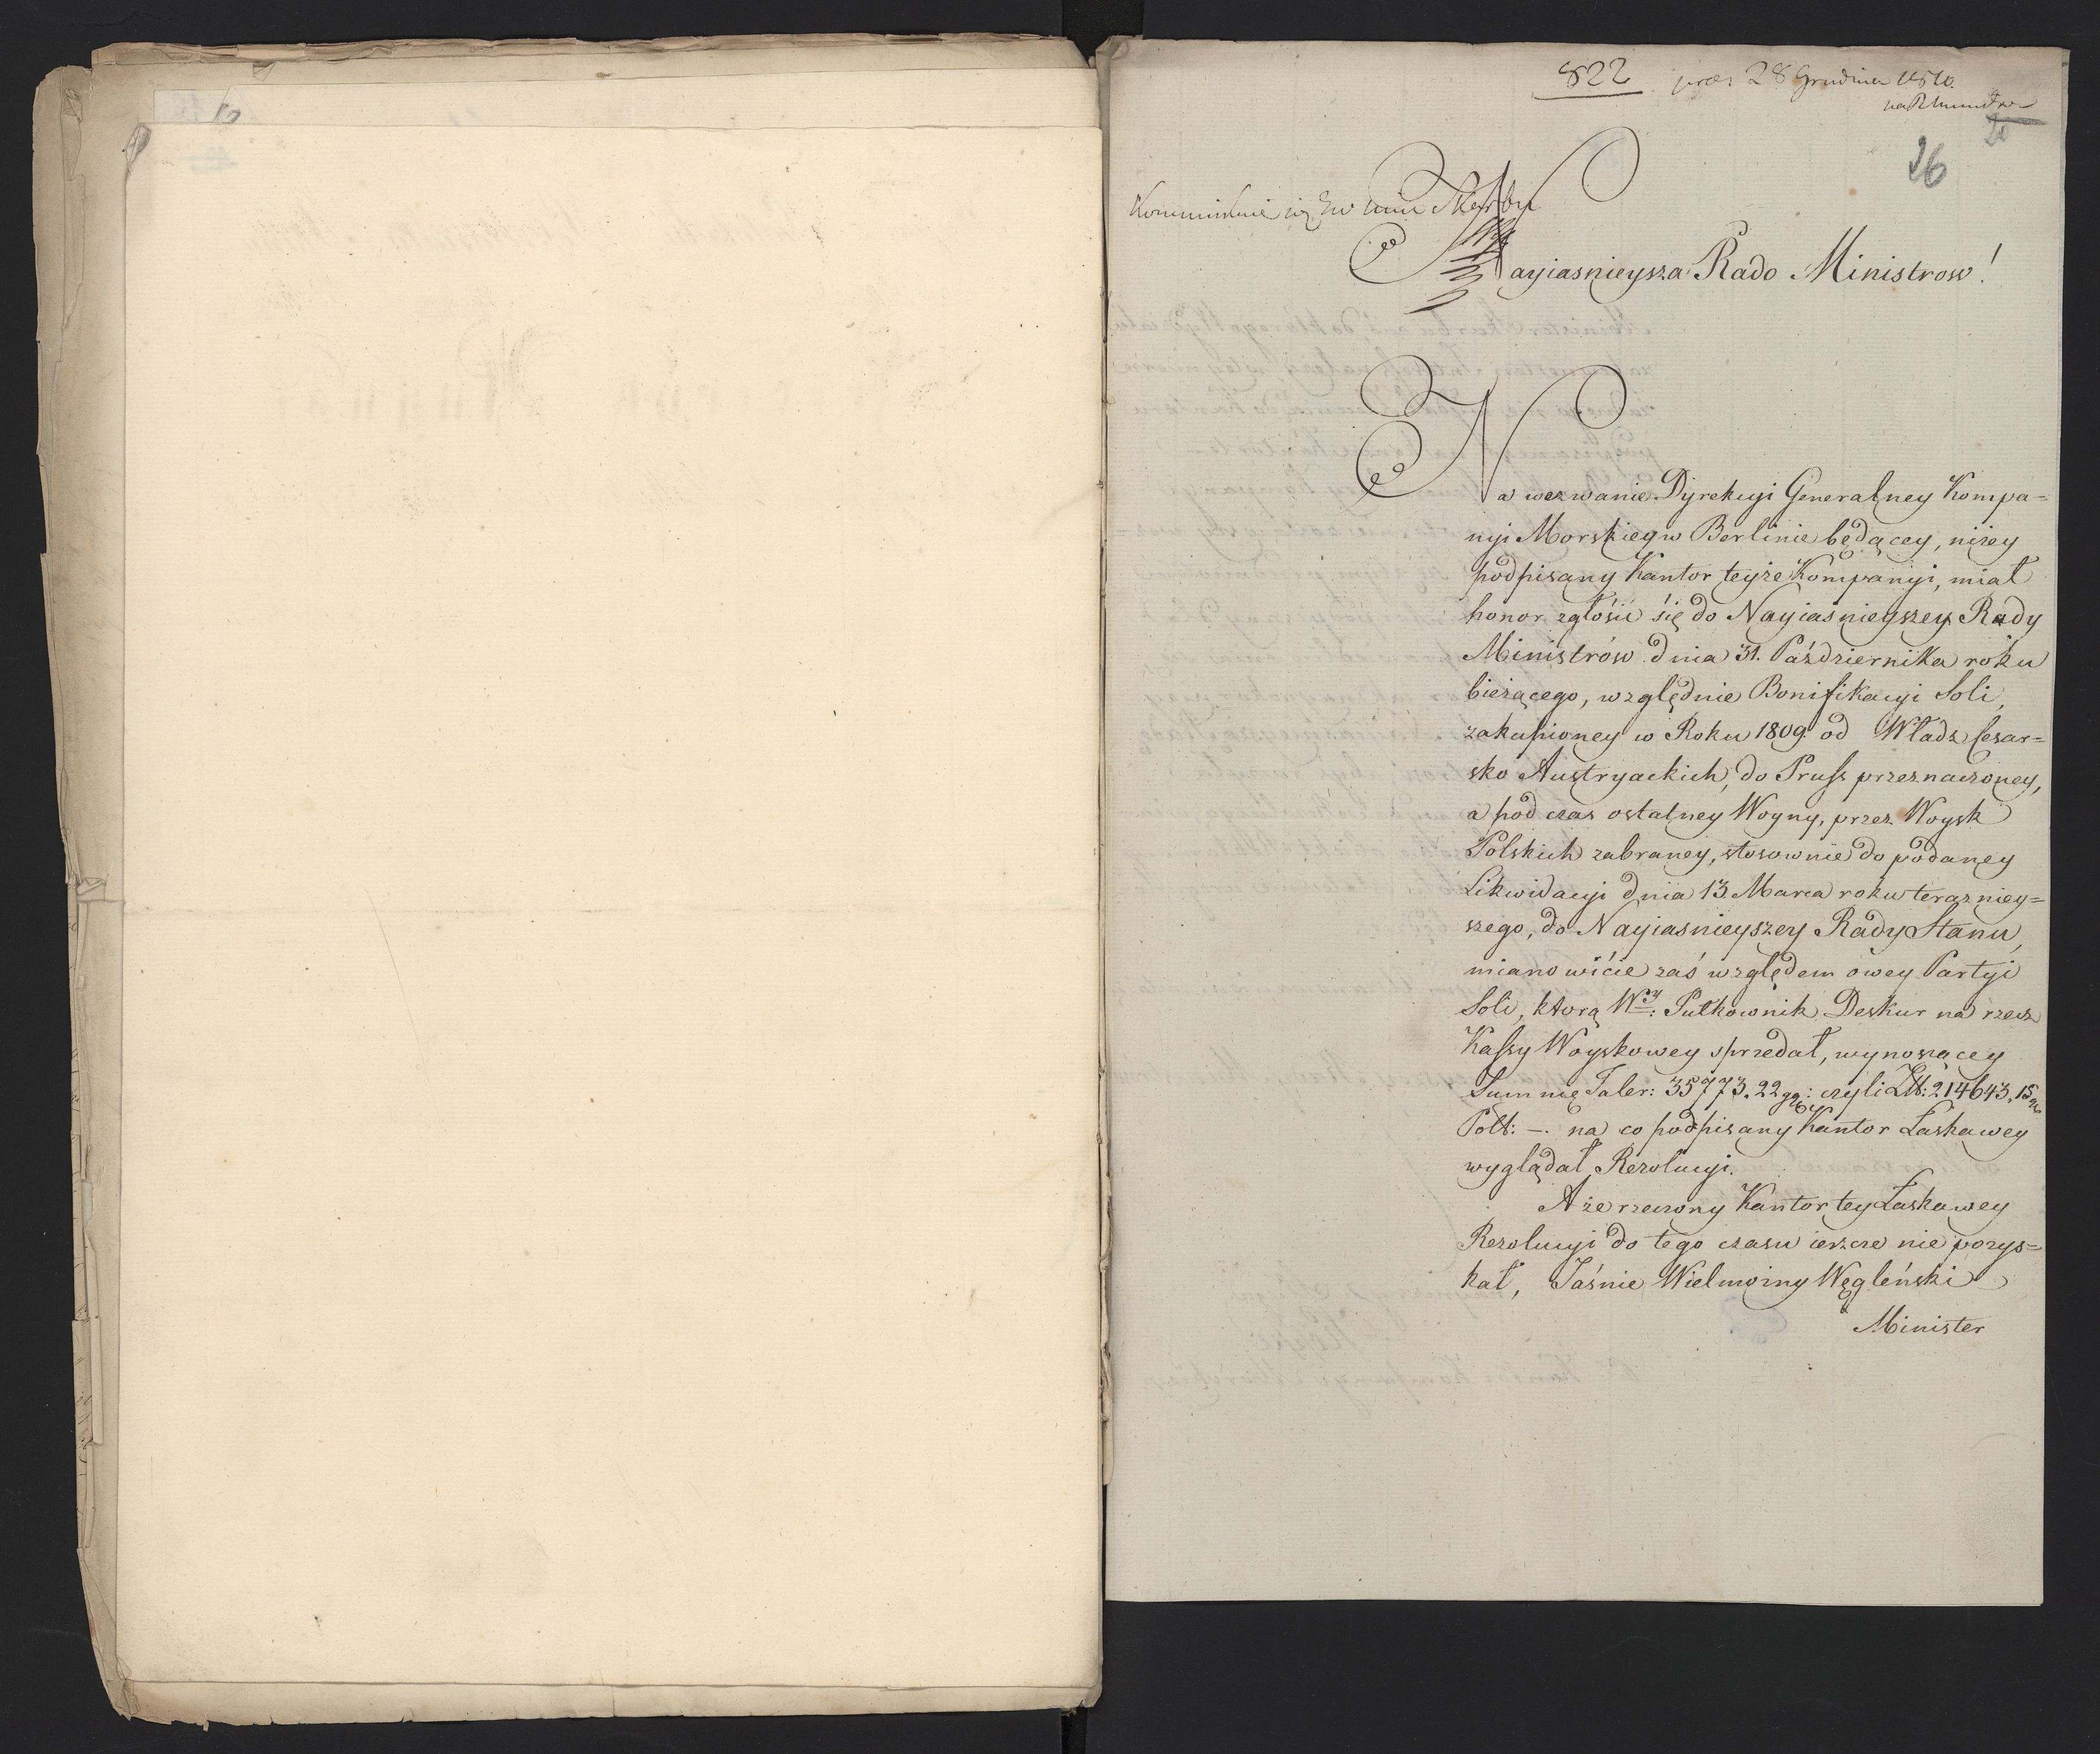 822 præs 28 Grudnia 1810.
26
Nayiasnieysza Rado Ministrow!
Na wezwanie Dyrekcyi Generalney Kompa=
nyi Morskiey w Berlinie będącey, niżey
podpisany Kantor teyże Kompanyi, miał
honor zgłosić się do Nayiasnieyszey Rady
Ministrów dnia 31. Października roku
bieżącego, względnie Bonifikacyi Soli,
zakupioney w Roku 1809 od Władz Cesar=
sko Austryackich, do Pruss przeznaczoney,
a pod czas ostatney Woyny, przez Woysk
Polskich zabraney, stosownie do podaney
Likwidacyi dnia 13 Marca roku terazniey=
szego, do Nayiasnieyszey Rady Stanu,
mianowićie zaś względem owey Partyi
Soli, ktorą Wy: Pułkownik Deskur na rzecz
Kassy Woyskowey sprzedał, wynoszącey
Summę Taler: 35773. 22 ggr: czyli Złt: 214643, 15 gr
Polt: –. na co podpisany Kantor Łaskawey
wyglądał Rezolucyi.
A że rzeczony Kantor tey Łaskawey
Rezolucyi do tego czasu ieszcze nie pozys=
kał, Jaśnie Wielmożny Węgleński
Minister